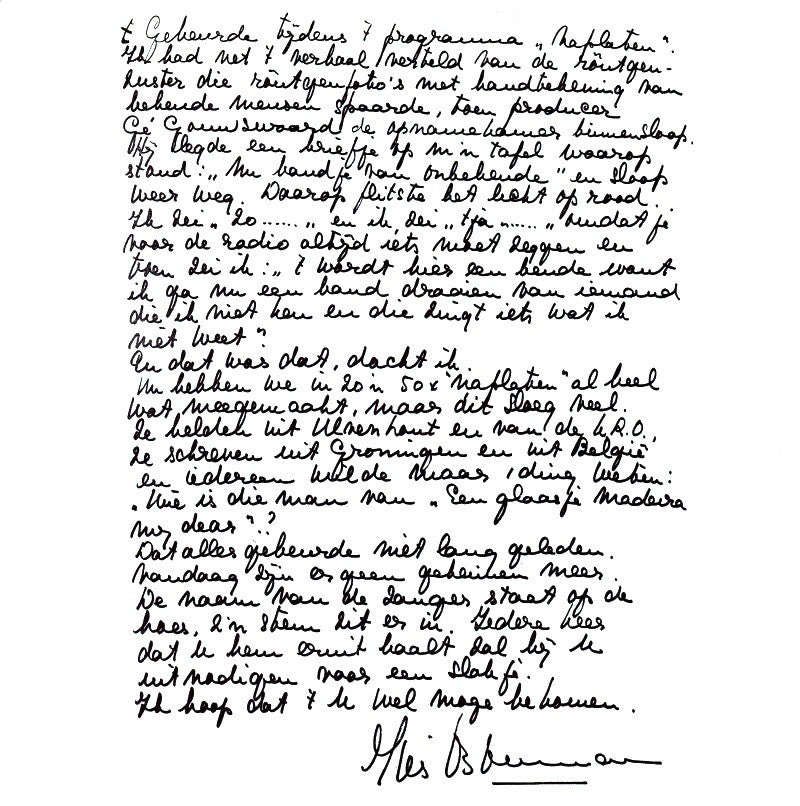 't Gebeurde tijdens 't programma „Naflaten".
Ik had net 't verhaal verteld van de röntgen-
zuster die röntgenfoto's met handtekening van
bekende mensen spaarde, toen producer
Gé Gouwswaard de opnamekamer binnensloop.
Hij legde een briefje op m'n tafel waarop
stond: „Nu bandje van onbekende" en sloop
weer weg. Daarop flitste het licht op rood.
Ik zei „zo......„ en ik zei „tja......„ omdat je
voor de radio altijd iets moet zeggen en
toen zei ik: „'t wordt hier een bende want
ik ga nu een band draaien van iemand
die ik niet ken en die zingt iets wat ik
niet weet".
En dat was dat, dacht ik.
Nu hebben we in zo'n 50x "naflaten" al heel
wat meegemaakt, maar dit sloeg veel.
Ze belden uit Ulvenhout en van de K.R.O.,
ze schreven uit Groningen en uit België
en iedereen wilde maar 1 ding weten:
„Wie is die man van „Een glaasje Madeira
my dear".?
Dat alles gebeurde niet lang geleden.
Vandaag zijn er geen geheimen meer.
De naam van de zanger staat op de
hoes, z'n stem zit er in. Iedere keer
dat u hem eruit haalt zal hij u
uitnodigen voor een slokje.
Ik hoop dat 't u wel moge bekomen.